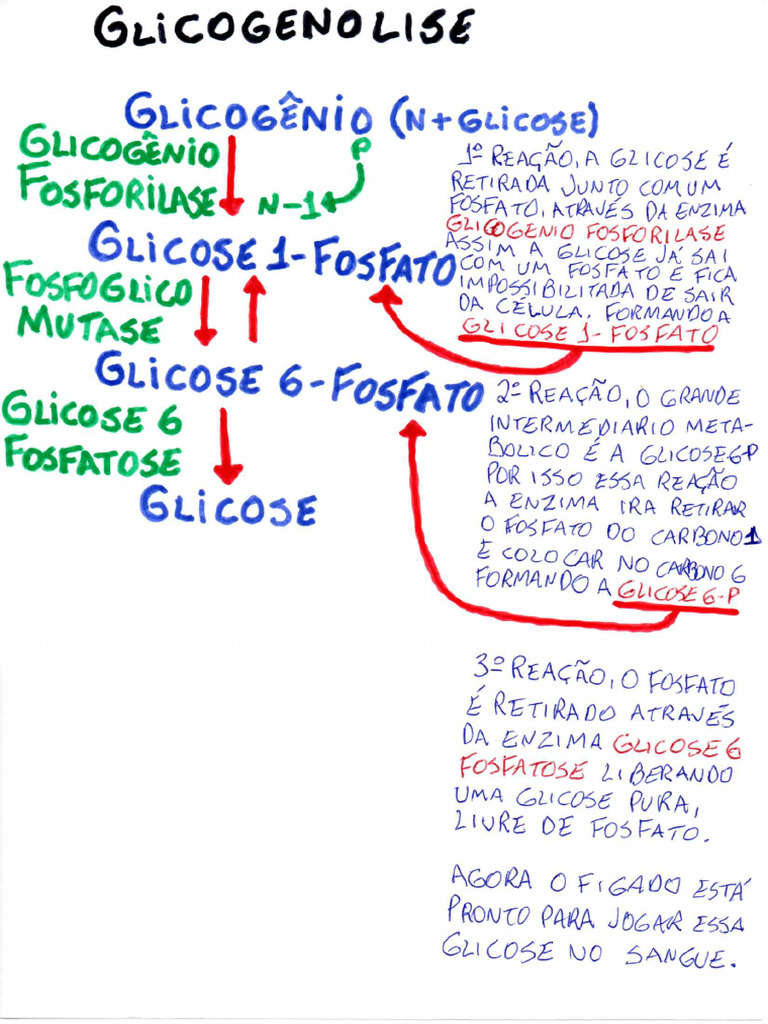 GLICOGENOLISE
GLICOGÊNIO (N+GLICOSE)
GLICOGÊNIO
FOSFORILASE
P
N-1
GLICOSE 1-FOSFATO
FOSFOGLICO
MUTASE
GLICOSE 6-FOSFATO
GLICOSE 6
FOSFATOSE
GLICOSE
1º REAÇÃO, A GLICOSE É
RETIRADA JUNTO COM UM
FOSFATO, ATRAVÉS DA ENZIMA
GLICOGENIO FOSFORILASE
ASSIM A GLICOSE JÁ SAI
COM UM FOSFATO E FICA
IMPOSSIBILITADA DE SAIR
DA CÉLULA, FORMANDO A
GLICOSE 1-FOSFATO
2º REAÇÃO, O GRANDE
INTERMEDIARIO META-
BOLICO É A GLICOSE6-P
POR ISSO ESSA REAÇÃO
A ENZIMA IRA RETIRAR
O FOSFATO DO CARBONO1
E COLOCAR NO CARBONO 6
FORMANDO A GLICOSE 6-P
3º REAÇÃO, O FOSFATO
É RETIRADO ATRAVÉS
DA ENZIMA GLICOSE 6
FOSFATOSE LIBERANDO
UMA GLICOSE PURA,
LIVRE DE FOSFATO.
AGORA O FIGADO ESTÁ
PRONTO PARA JOGAR ESSA
GLICOSE NO SANGUE.